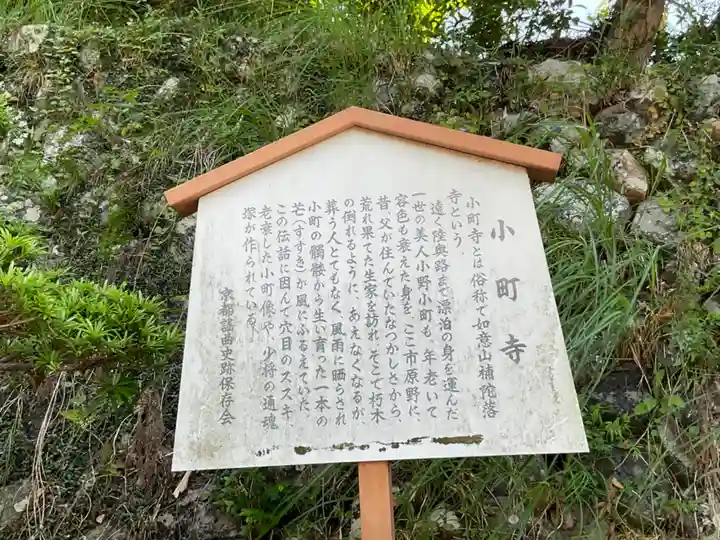 小町寺
小町寺とは俗称で如意山補陀落
寺という。
遠く陸奥路まで漂泊の身を運んだ
一世の美人小野小町も、年老いて
容色も衰えた身を、ここ市原野に、
昔、父が住んでいたなつかしさから、
荒れ果てた生家を訪れ、そこで朽木
の倒れるように、あえなくなるが
葬う人とてもなく、風雨に晒らされ
小町の髑髅から生い育った一本の
芒(すすき)が風にふるえていた。
この伝話に因んで穴目のススキ、
老衰した小町像や、少将の通魂
塚が作られている。
京都謡曲史跡保存会